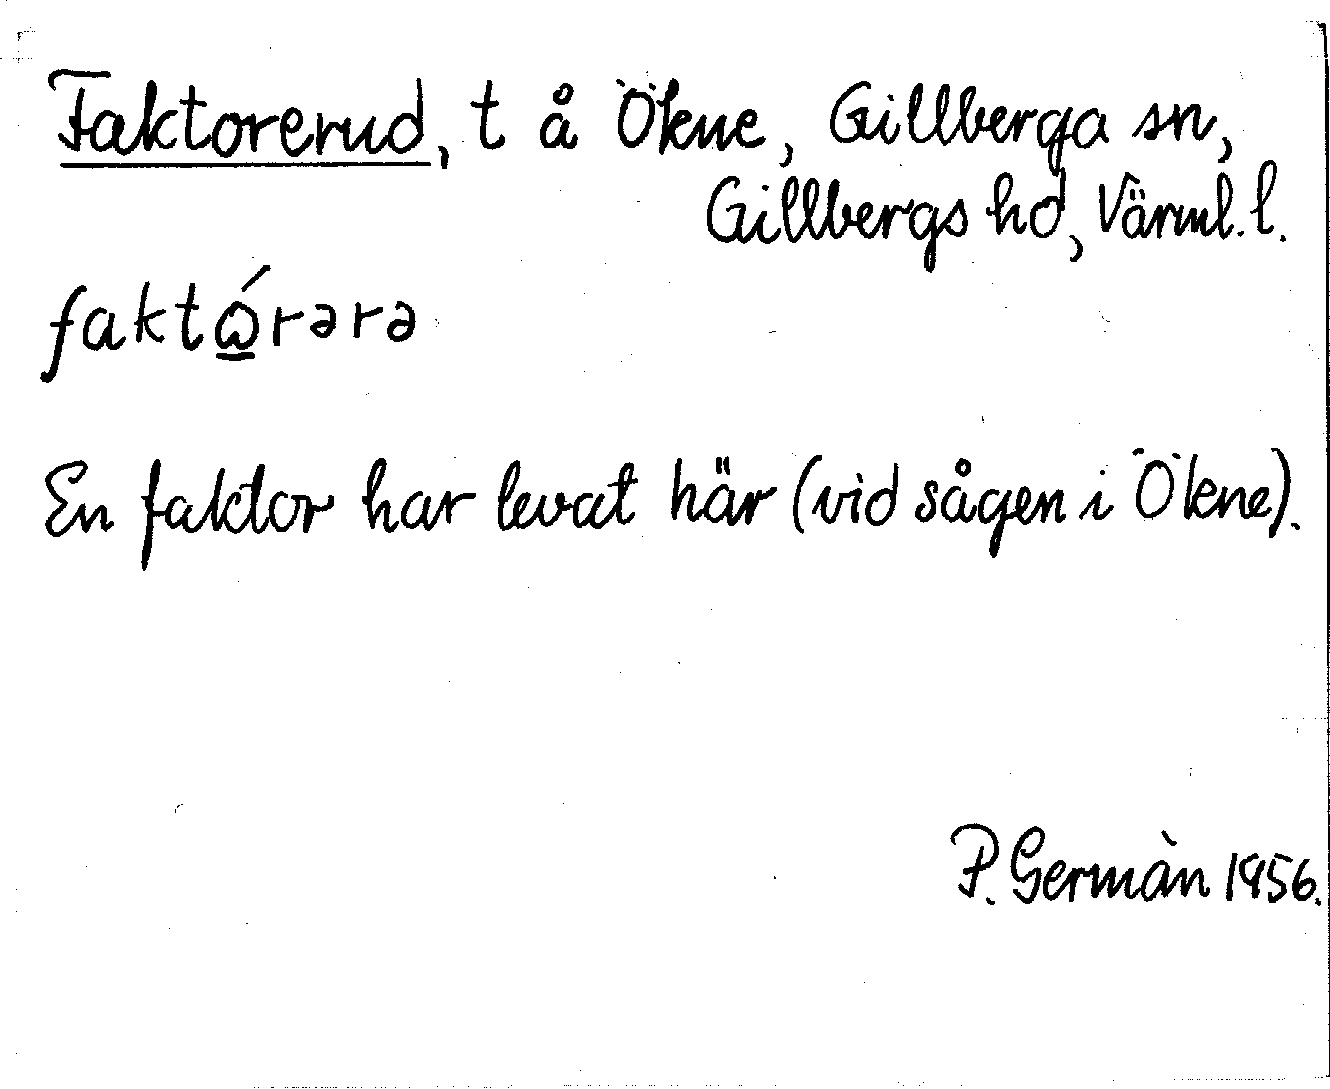 Faktorerud, t å Ökne, Gillberga sn,
Gillbergs hd, Värml. l.
faktώ̲rərə
En faktor har levat här (vid sågen i Ökne).
P. Germàn 1956.